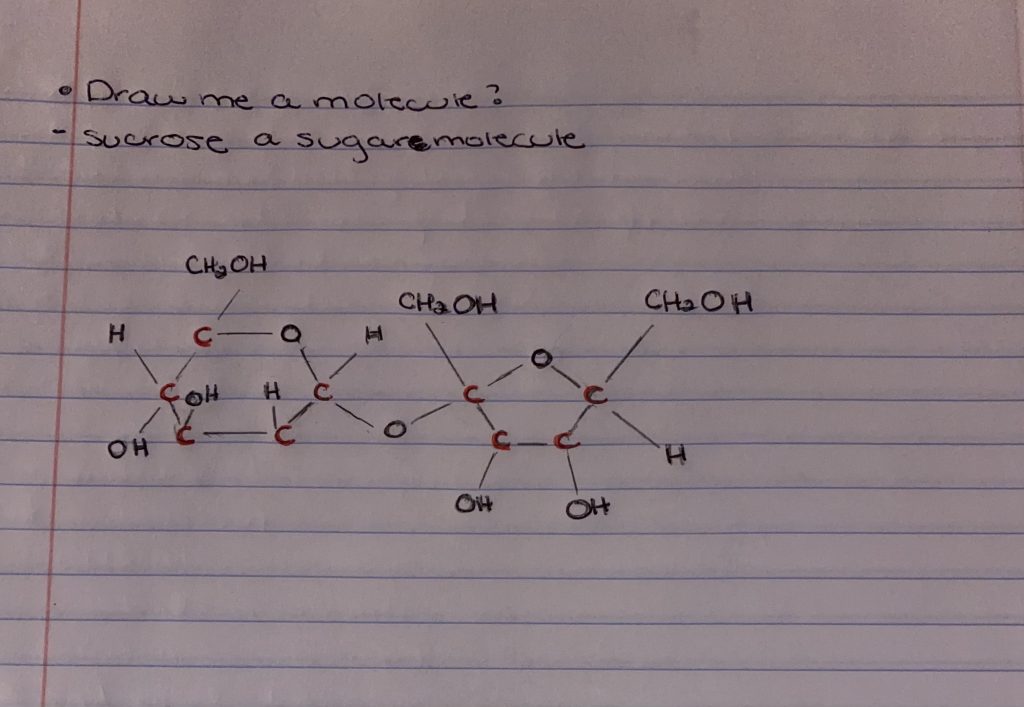 • Draw me a molecule?
- sucrose a sugar molecule
CH₂OH
CH₂OH CH₂OH
H C O H
O
C OH H C C C
OH C C O C C H
OH OH